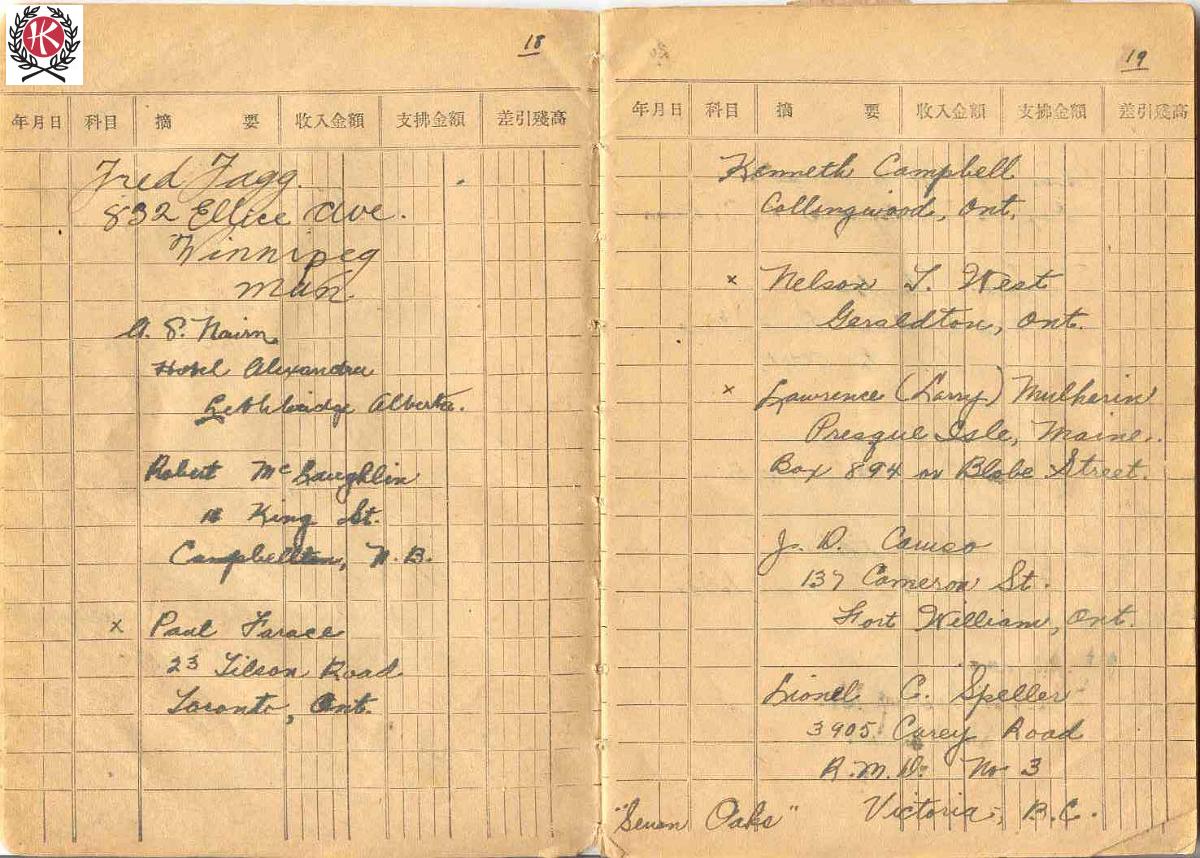 HK
18
年月日 科目 摘要 收入金額 支拂金額 差引殘高
Fred Fagg.
832 Ellice Ave.
Winnipeg
Man.
A. S. Nairn
Hotel Alexandra
Lethbridge Alberta.
Robert McLaughlin
18 King St.
Campbellton, N.B.
x Paul Farace
23 Tilson Road
Toronto, Ont.
19
年月日 科目 摘要 收入金額 支拂金額 差引殘高
Kenneth Campbell
Collingwood, Ont.
x Nelson T. West
Geraldton, Ont.
x Lawrence (Larry) Mulherin
Presque Isle, Maine.
Box 894 or Blobe Street.
J. D. Caruso
137 Cameron St.
Fort William, Ont.
Lionel C. Speller
3905 Carey Road
R.M.D. No 3
"Seven Oaks" Victoria, B.C.